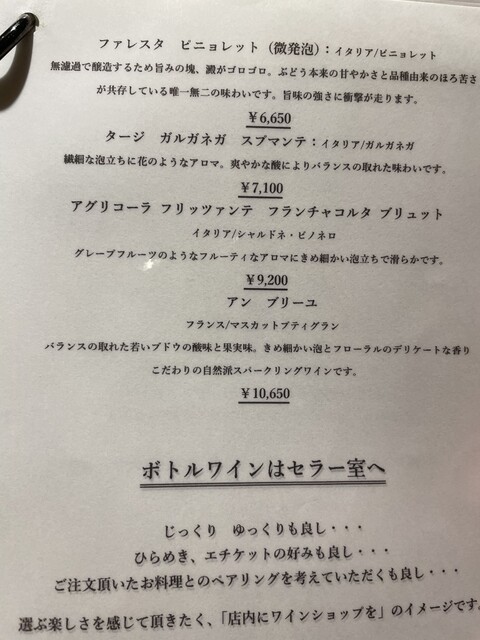 ファレスタ　ビニョレット（微発泡）：イタリア/ピニョレット
無濾過で醸造するため旨みの塊、澱がゴロゴロ。ぶどう本来の甘やかさと品種由来のほろ苦さ
が共存している唯一無二の味わいです。旨味の強さに衝撃が走ります。
￥6,650
タージ　ガルガネガ　スプマンテ：イタリア/ガルガネガ
繊細な泡立ちに花のようなアロマ。爽やかな酸によりバランスの取れた味わいです。
￥7,100
アグリコーラ フリッツァンテ　フランチャコルタ ブリュット
イタリア/シャルドネ・ピノネロ
グレープフルーツのようなフルーティなアロマにきめ細かい泡立ちで滑らかです。
￥9,200
アン　ブリーユ
フランス/マスカットプティグラン
バランスの取れた若いブドウの酸味と果実味。きめ細かい泡とフローラルのデリケートな香り
こだわりの自然派スパークリングワインです。
￥10,650
ボトルワインはセラー室へ
じっくり　ゆっくりも良し・・・
ひらめき、エチケットの好みも良し・・・
ご注文頂いたお料理とのペアリングを考えていただくも良し・・・
選ぶ楽しさを感じて頂きたく、「店内にワインショップを」のイメージです。